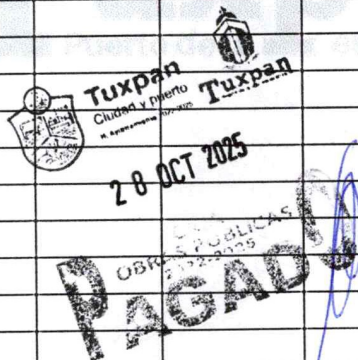 Tuxpan
Ciudad y puerto
H. Ayuntamiento 2022-2025
Tuxpan
28 OCT 2025
OBRAS PÚBLICAS
2022-2025
PAGADO